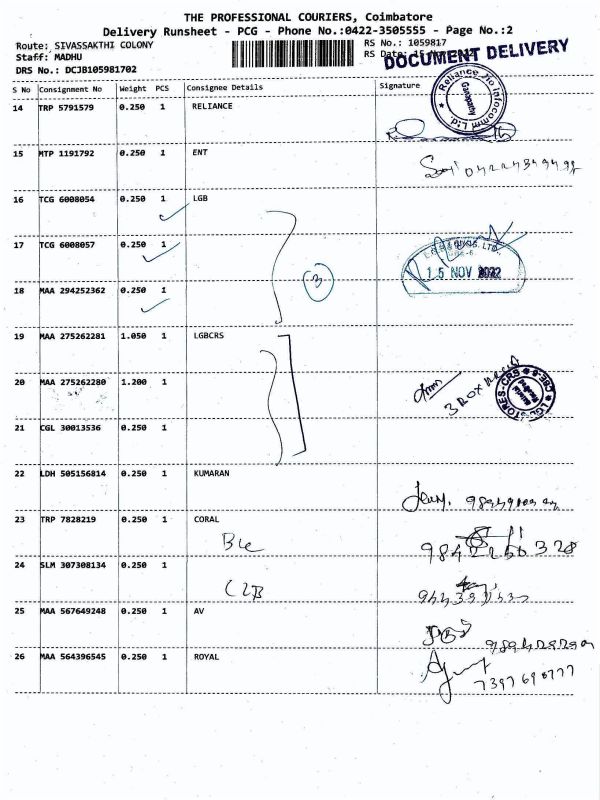 THE PROFESSIONAL COURIERS, Coimbatore
Delivery Runsheet - PCG - Phone No.:0422-3505555 - Page No.:2
Route: SIVASSAKTHI COLONY
RS No.: 1059817
Staff: MADHU
RS Date: 15
DOCUMENT DELIVERY
DRS No.: DCJB105981702
S No Consignment No Weight PCS Consignee Details Signature
Reliance Jio Infocomm
14 TRP 5791579 0.250 1 RELIANCE
15 MTP 1191792 0.250 1 ENT
16 TCG 6008054 0.250 1 LGB
17 TCG 6008057 0.250 1
3
15 NOV 2022
18 MAA 294252362 0.250 1
19 MAA 275262281 1.050 1 LGBCRS
20 MAA 275262280 1.200 1
3 BOX
21 CGL 30013536 0.250 1
22 LDH 505156814 0.250 1 KUMARAN
23 TRP 7828219 0.250 1 CORAL
24 SLM 307308134 0.250 1
25 MAA 567649248 0.250 1 AV
26 MAA 564396545 0.250 1 ROYAL